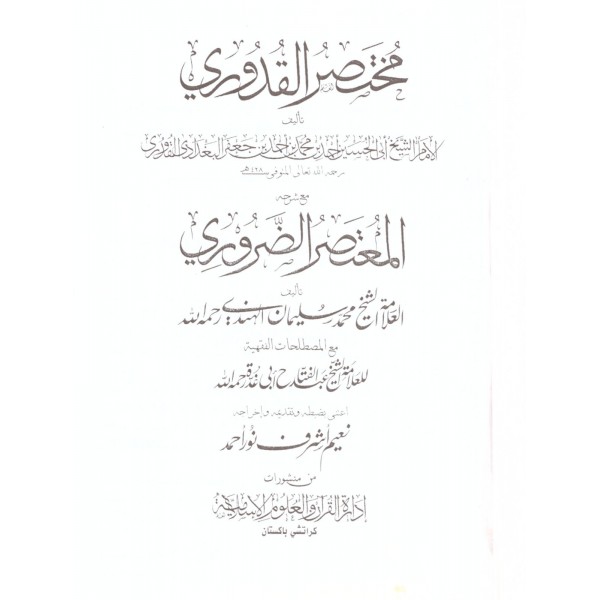 مختصر القدوري
تأليف
الإمام الشيخ أبي الحسين أحمد بن محمد بن أحمد بن جعفر البغدادي القدوري
رحمه الله تعالى المتوفى ٤٢٨ هـ
مع شرحه
المعتصر الضروري
تأليف
العلامة الشيخ محمد سليمان الهندي رحمه الله
مع المصطلحات الفقهية
للعلامة الشيخ عبد الفتاح أبي غدة رحمه الله
اعتنى بضبطه وتقديمه وإخراجه
نعيم أشرف نور أحمد
من منشورات
إدارة القرآن والعلوم الإسلامية
كراتشي باكستان